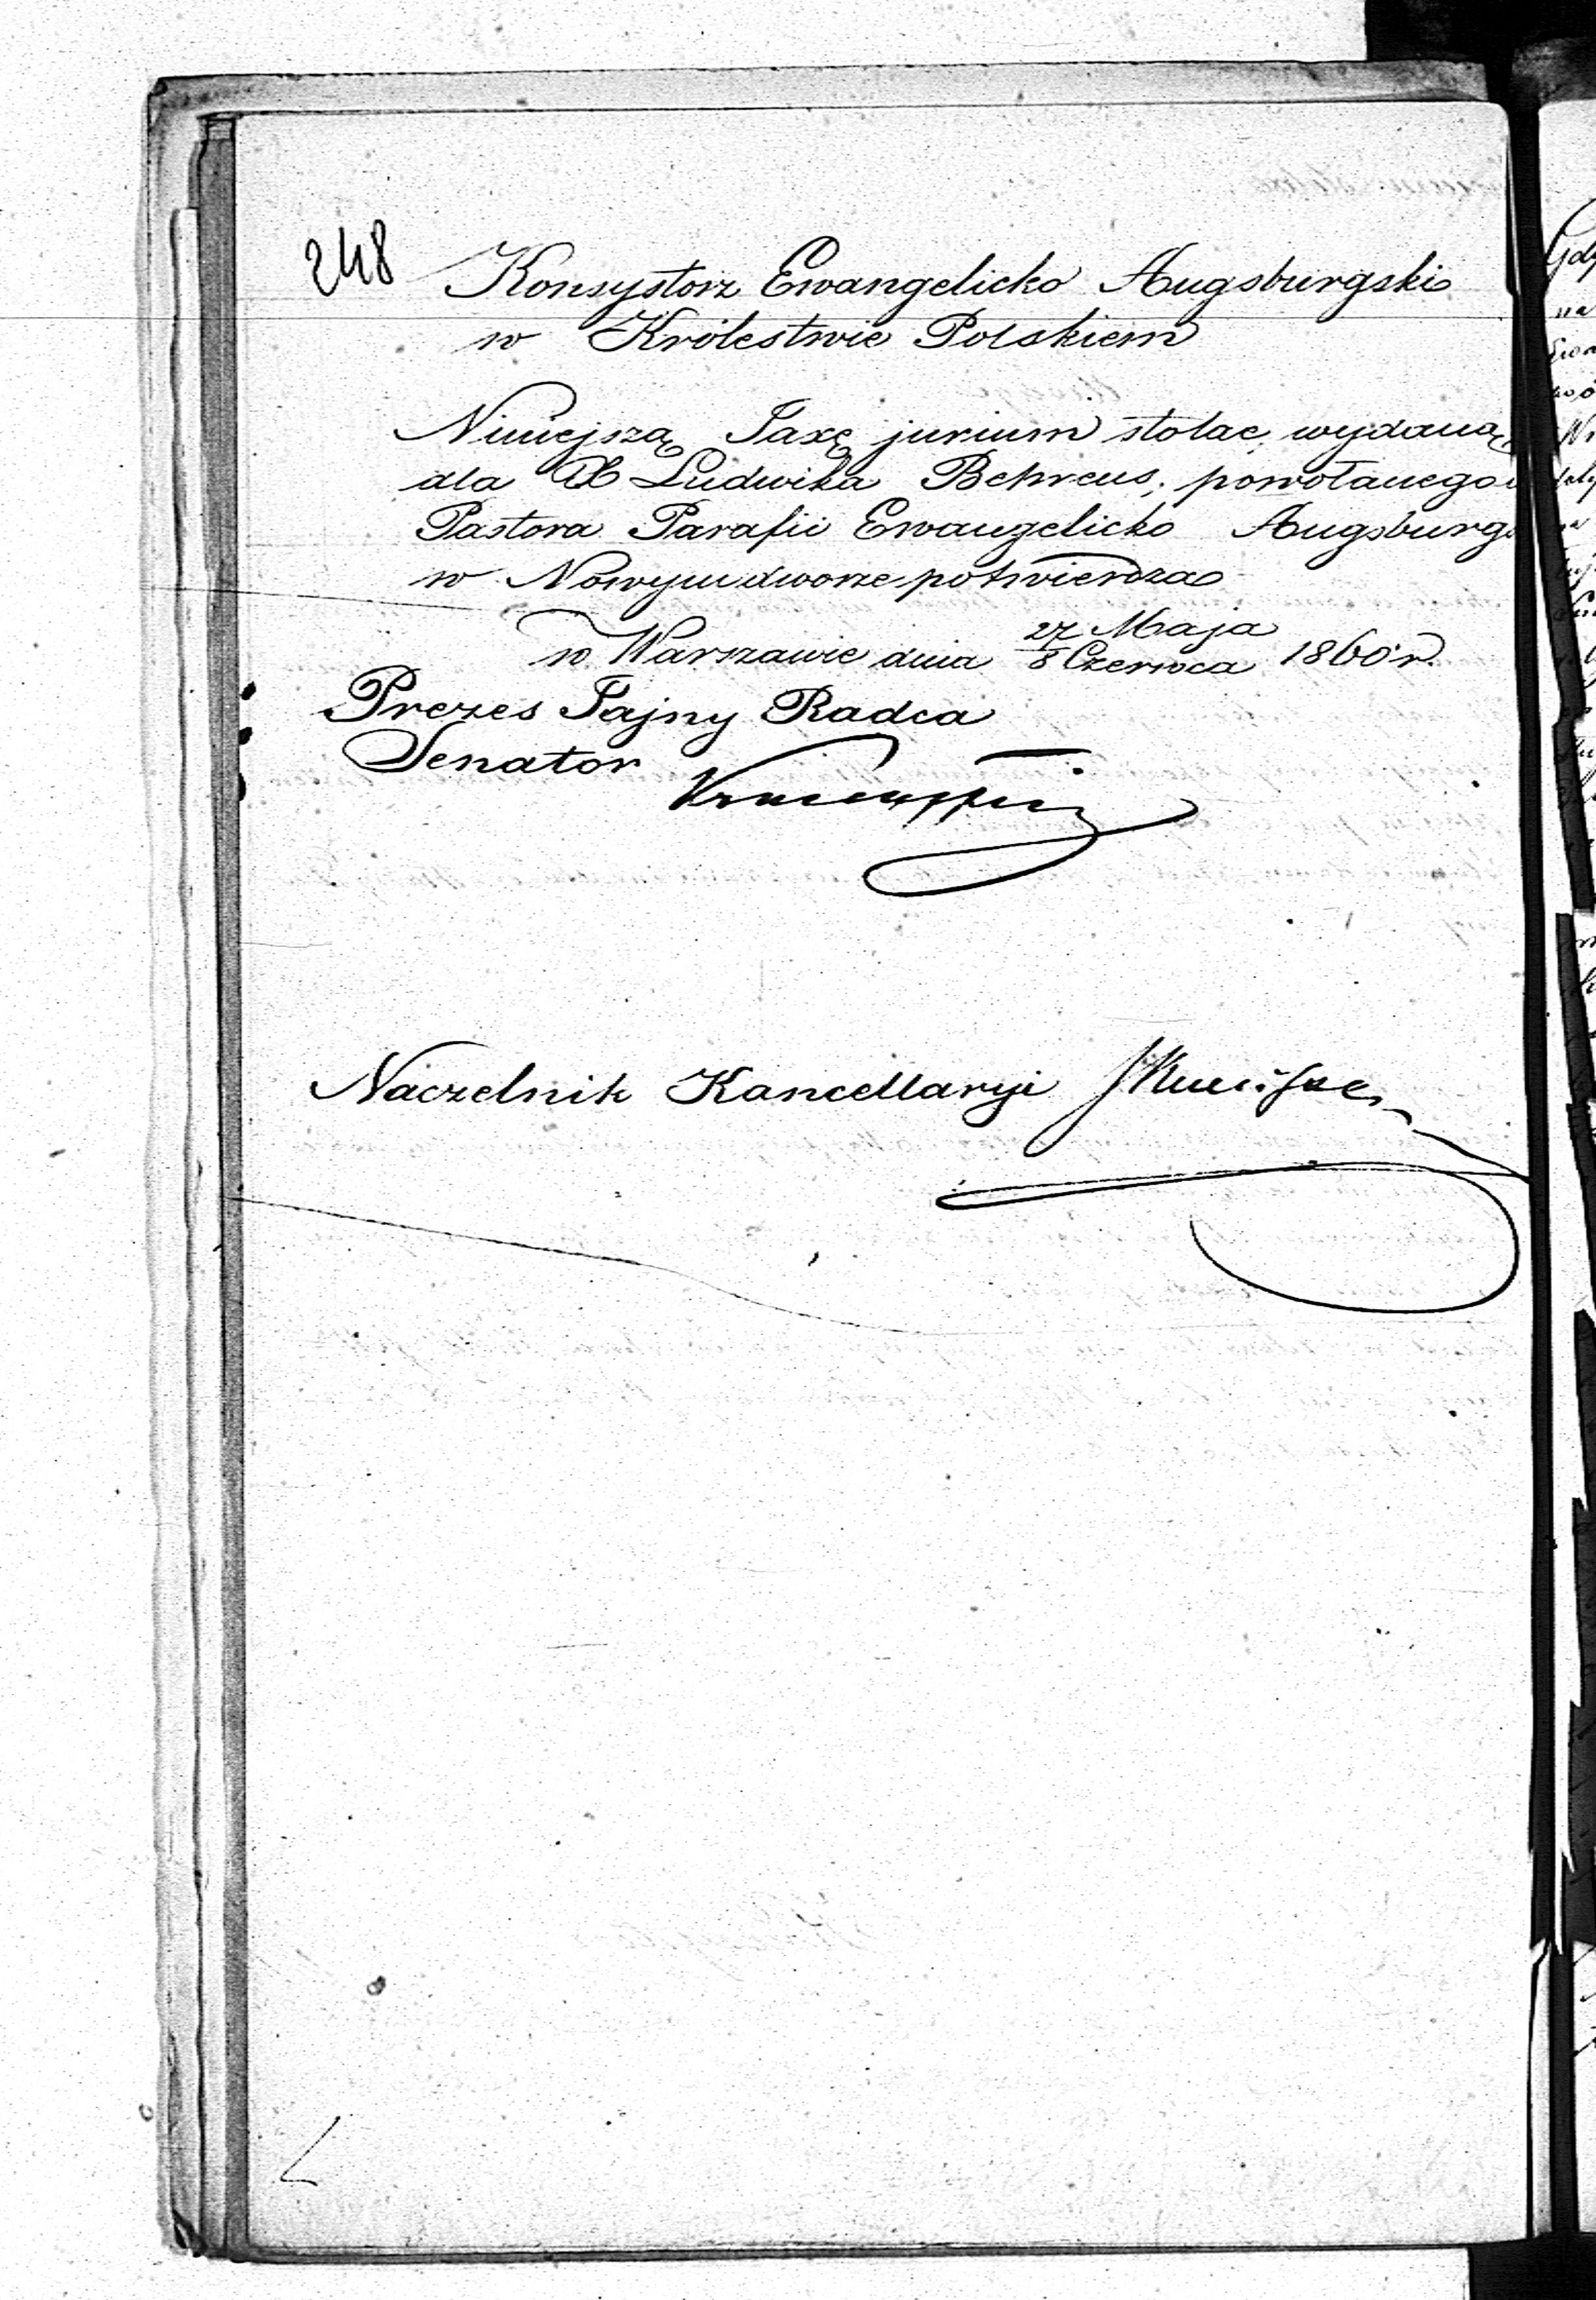 248
Konsystorz Ewangelicko Augsburgski
w Królestwie Polskiem
Niniejszą Taxę jurium stolae, wydaną
dla X Ludwika Behrens, powołanego
Pastora Parafii Ewangelicko Augsburgs
w Nowymdworze potwierdza
w Warszawie dnia 27 Maja
8 Czerwca 1860 r.
Prezes Tajny Radca
Senator
Naczelnik Kancellaryi